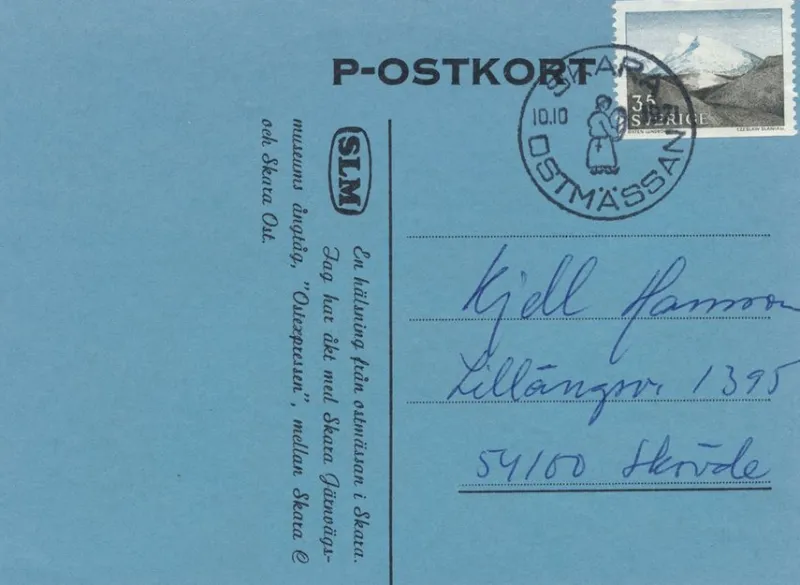 P-OSTKORT
SKARA
10.10 1971
OSTMÄSSAN
35
SVERIGE
CZESLAW SLANIA SC.
SLM
En hälsning från ostmässan i Skara.
Jag har åkt med Skara Järnvägs-
museums ångtåg, "Ostexpressen", mellan Skara C
och Skara Ost.
Kjell Hansson
Lillängsv. 1395
54100 Skövde